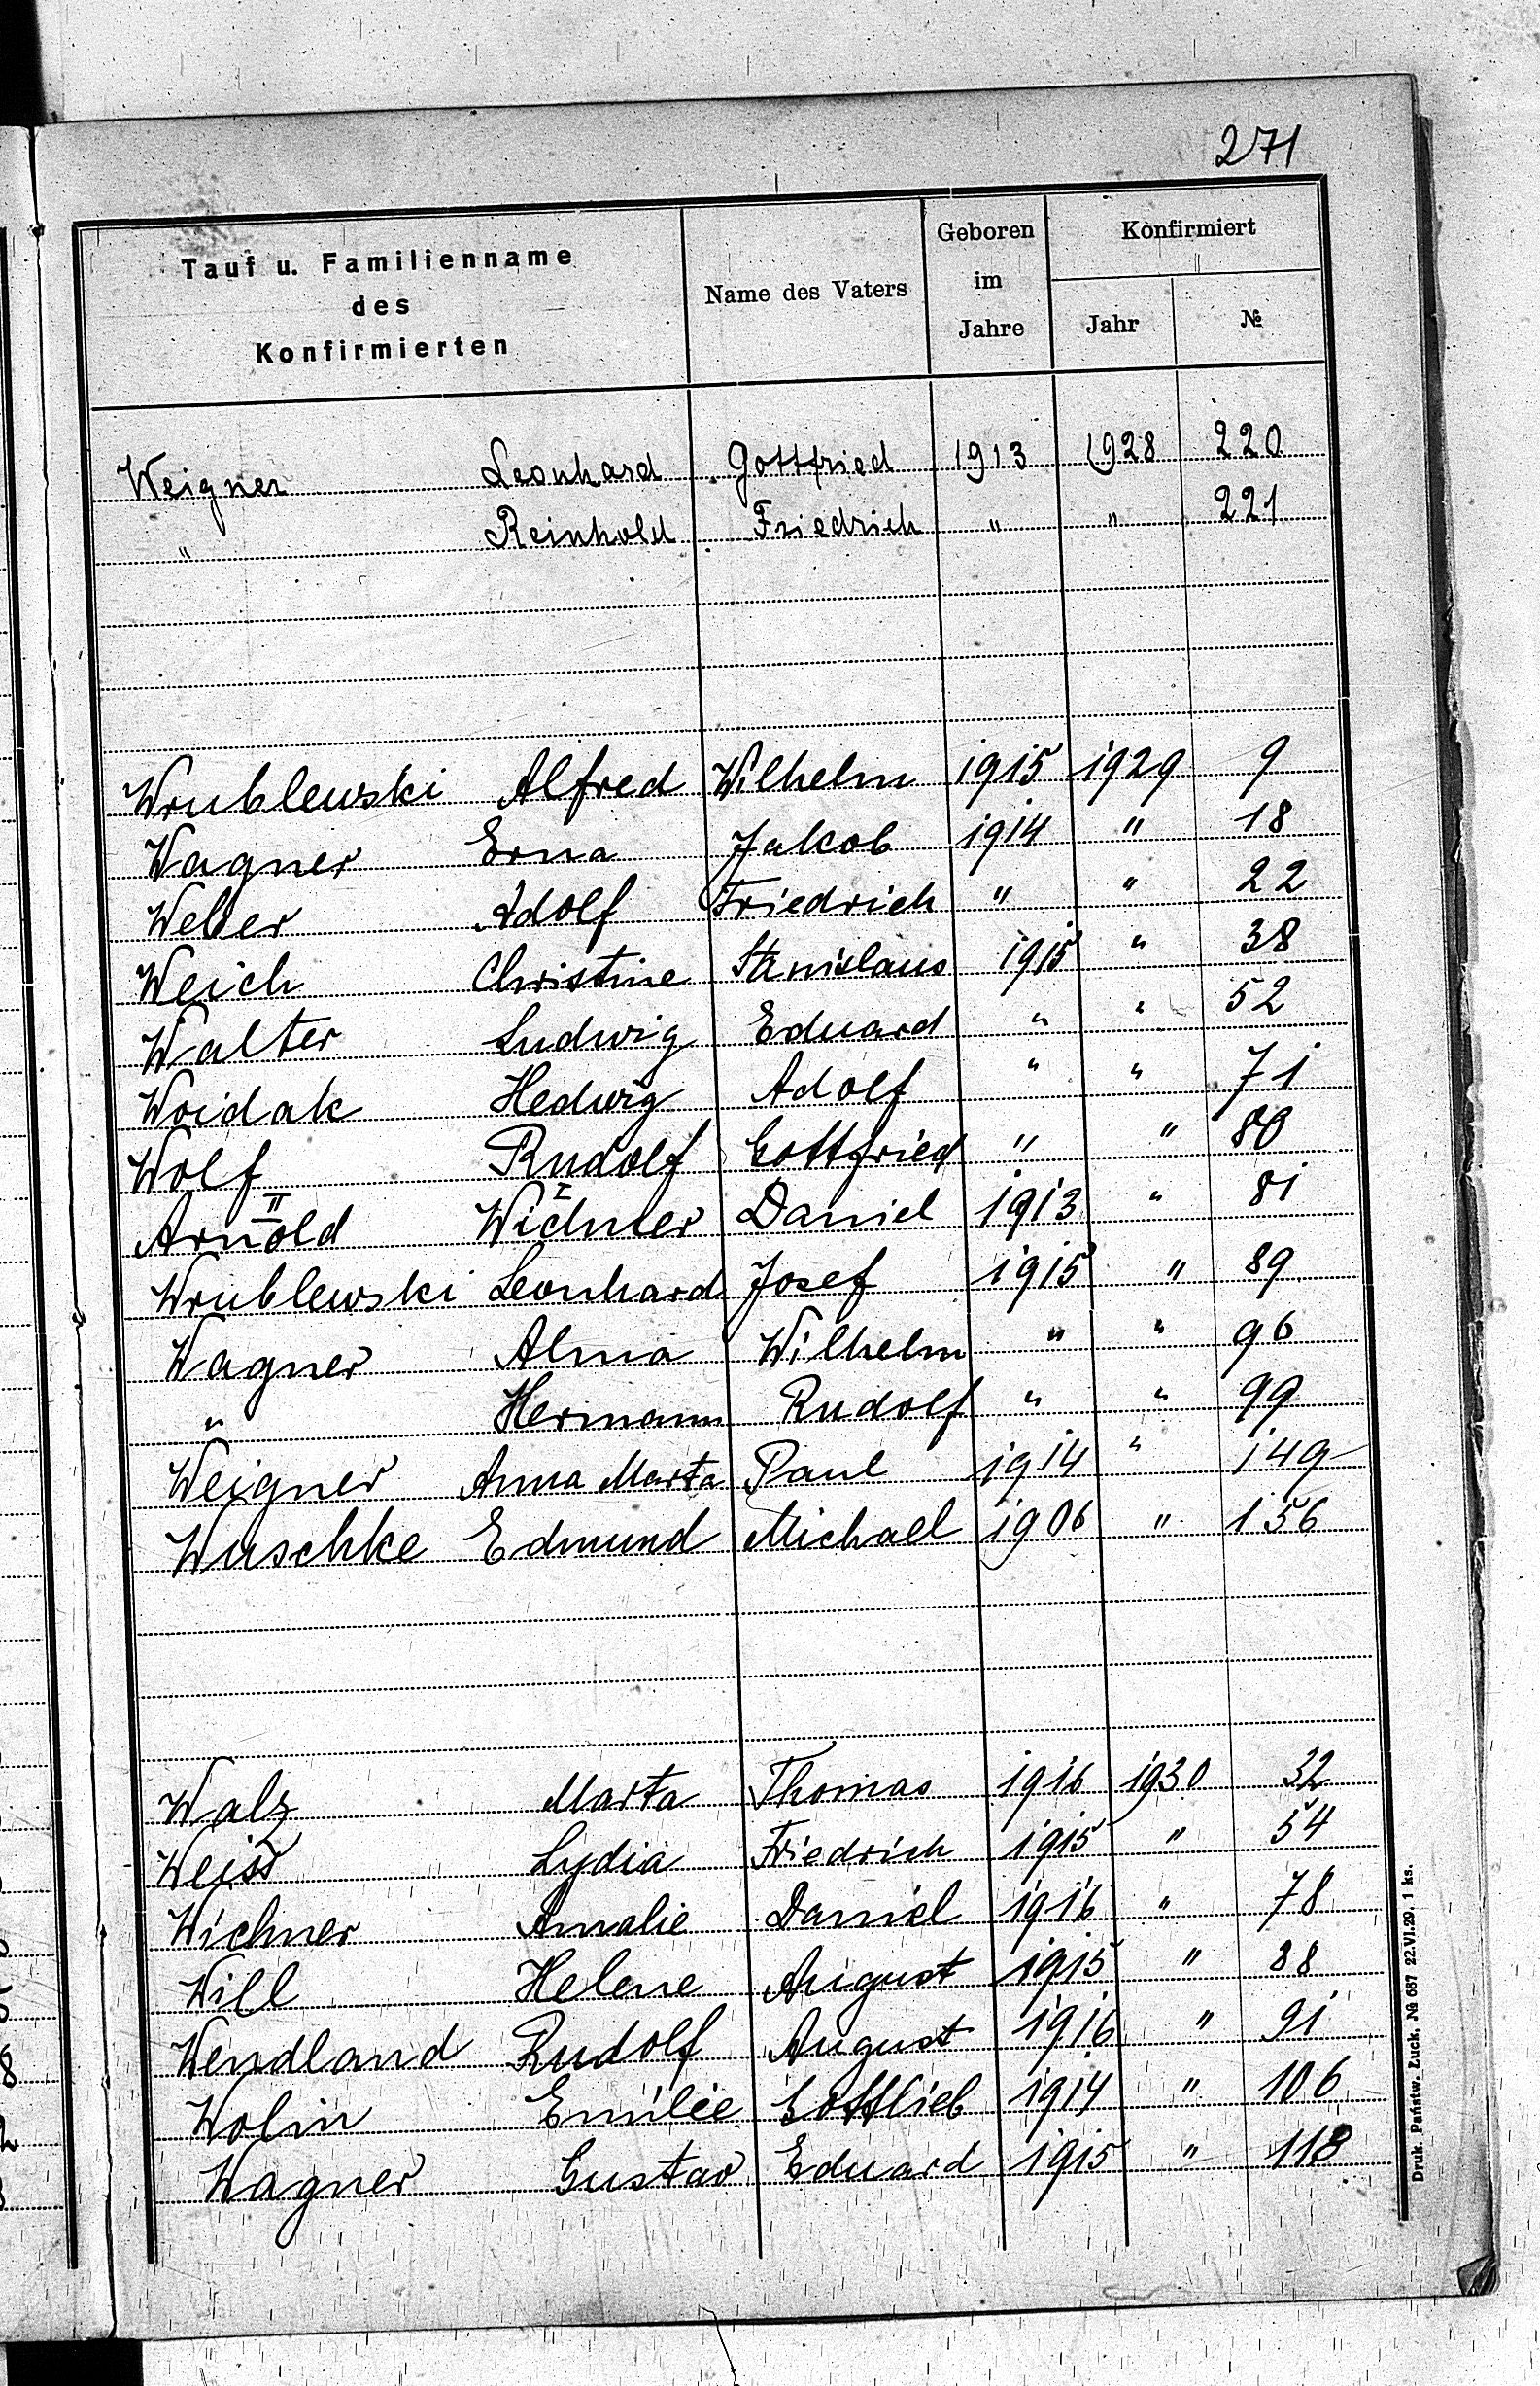 271
Tauf u. Familienname des Konfirmierten | Name des Vaters | Geboren im Jahre | Konfirmiert Jahr | №
Weigner Leonhard Gottfried 1913 1928 220
" Reinhold Friedrich " " 221
Wrublewski Alfred Wilhelm 1915 1929 9
Wagner Erna Jakob 1914 " 18
Weber Adolf Friedrich " " 22
Weich Christine Stanislaus 1915 " 38
Walter Ludwig Eduard " " 52
Woidak Hedwig Adolf " " 71
Wolf Rudolf Gottfried " " 80
II I
Arnold Wichner Daniel 1913 " 81
Wrublewski Leonhard Josef 1915 " 89
Wagner Alma Wilhelm " " 96
" Hermann Rudolf " " 99
Weigner Anna Marta Paul 1914 " 149
Wuschke Edmund Michael 1906 " 156
Walz Marta Thomas 1916 1930 32
Weiss Lydia Friedrich 1915 " 54
Wichner Amalie Daniel 1916 " 78
Will Helene August 1915 " 88
Wendland Rudolf August 1916 " 91
Wolin Emilie Gottlieb 1914 " 106
Wagner Gustav Eduard 1915 " 118
Druk. Państw. Łuck, № 667 22.VI.29. 1 ks.